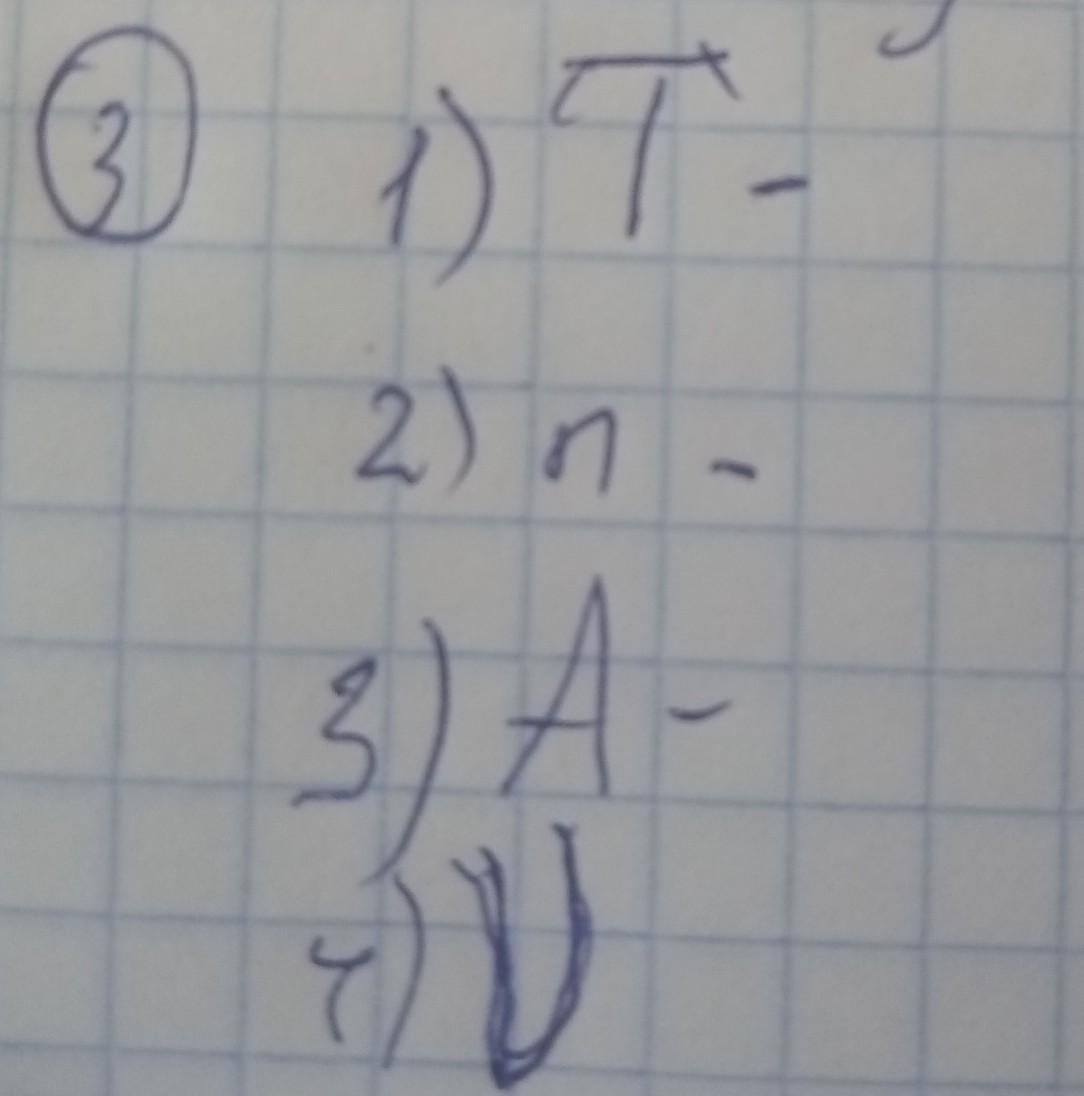 3 1) T -
2) n -
3) A -
4) V